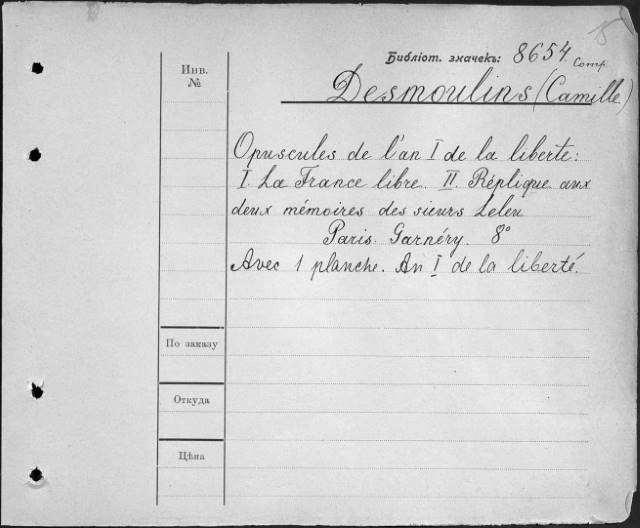 15
Библіот. значекъ: 8654. Comp.
Инв.
№
Desmoulins (Camille)
Opuscules de l'an I de la liberté:
I. La France libre. II. Réplique aux
deux mémoires des sieurs Leleu
Paris. Garnéry. 8°
Avec 1 planche. An I de la liberté.
По заказу
Откуда
Цѣна